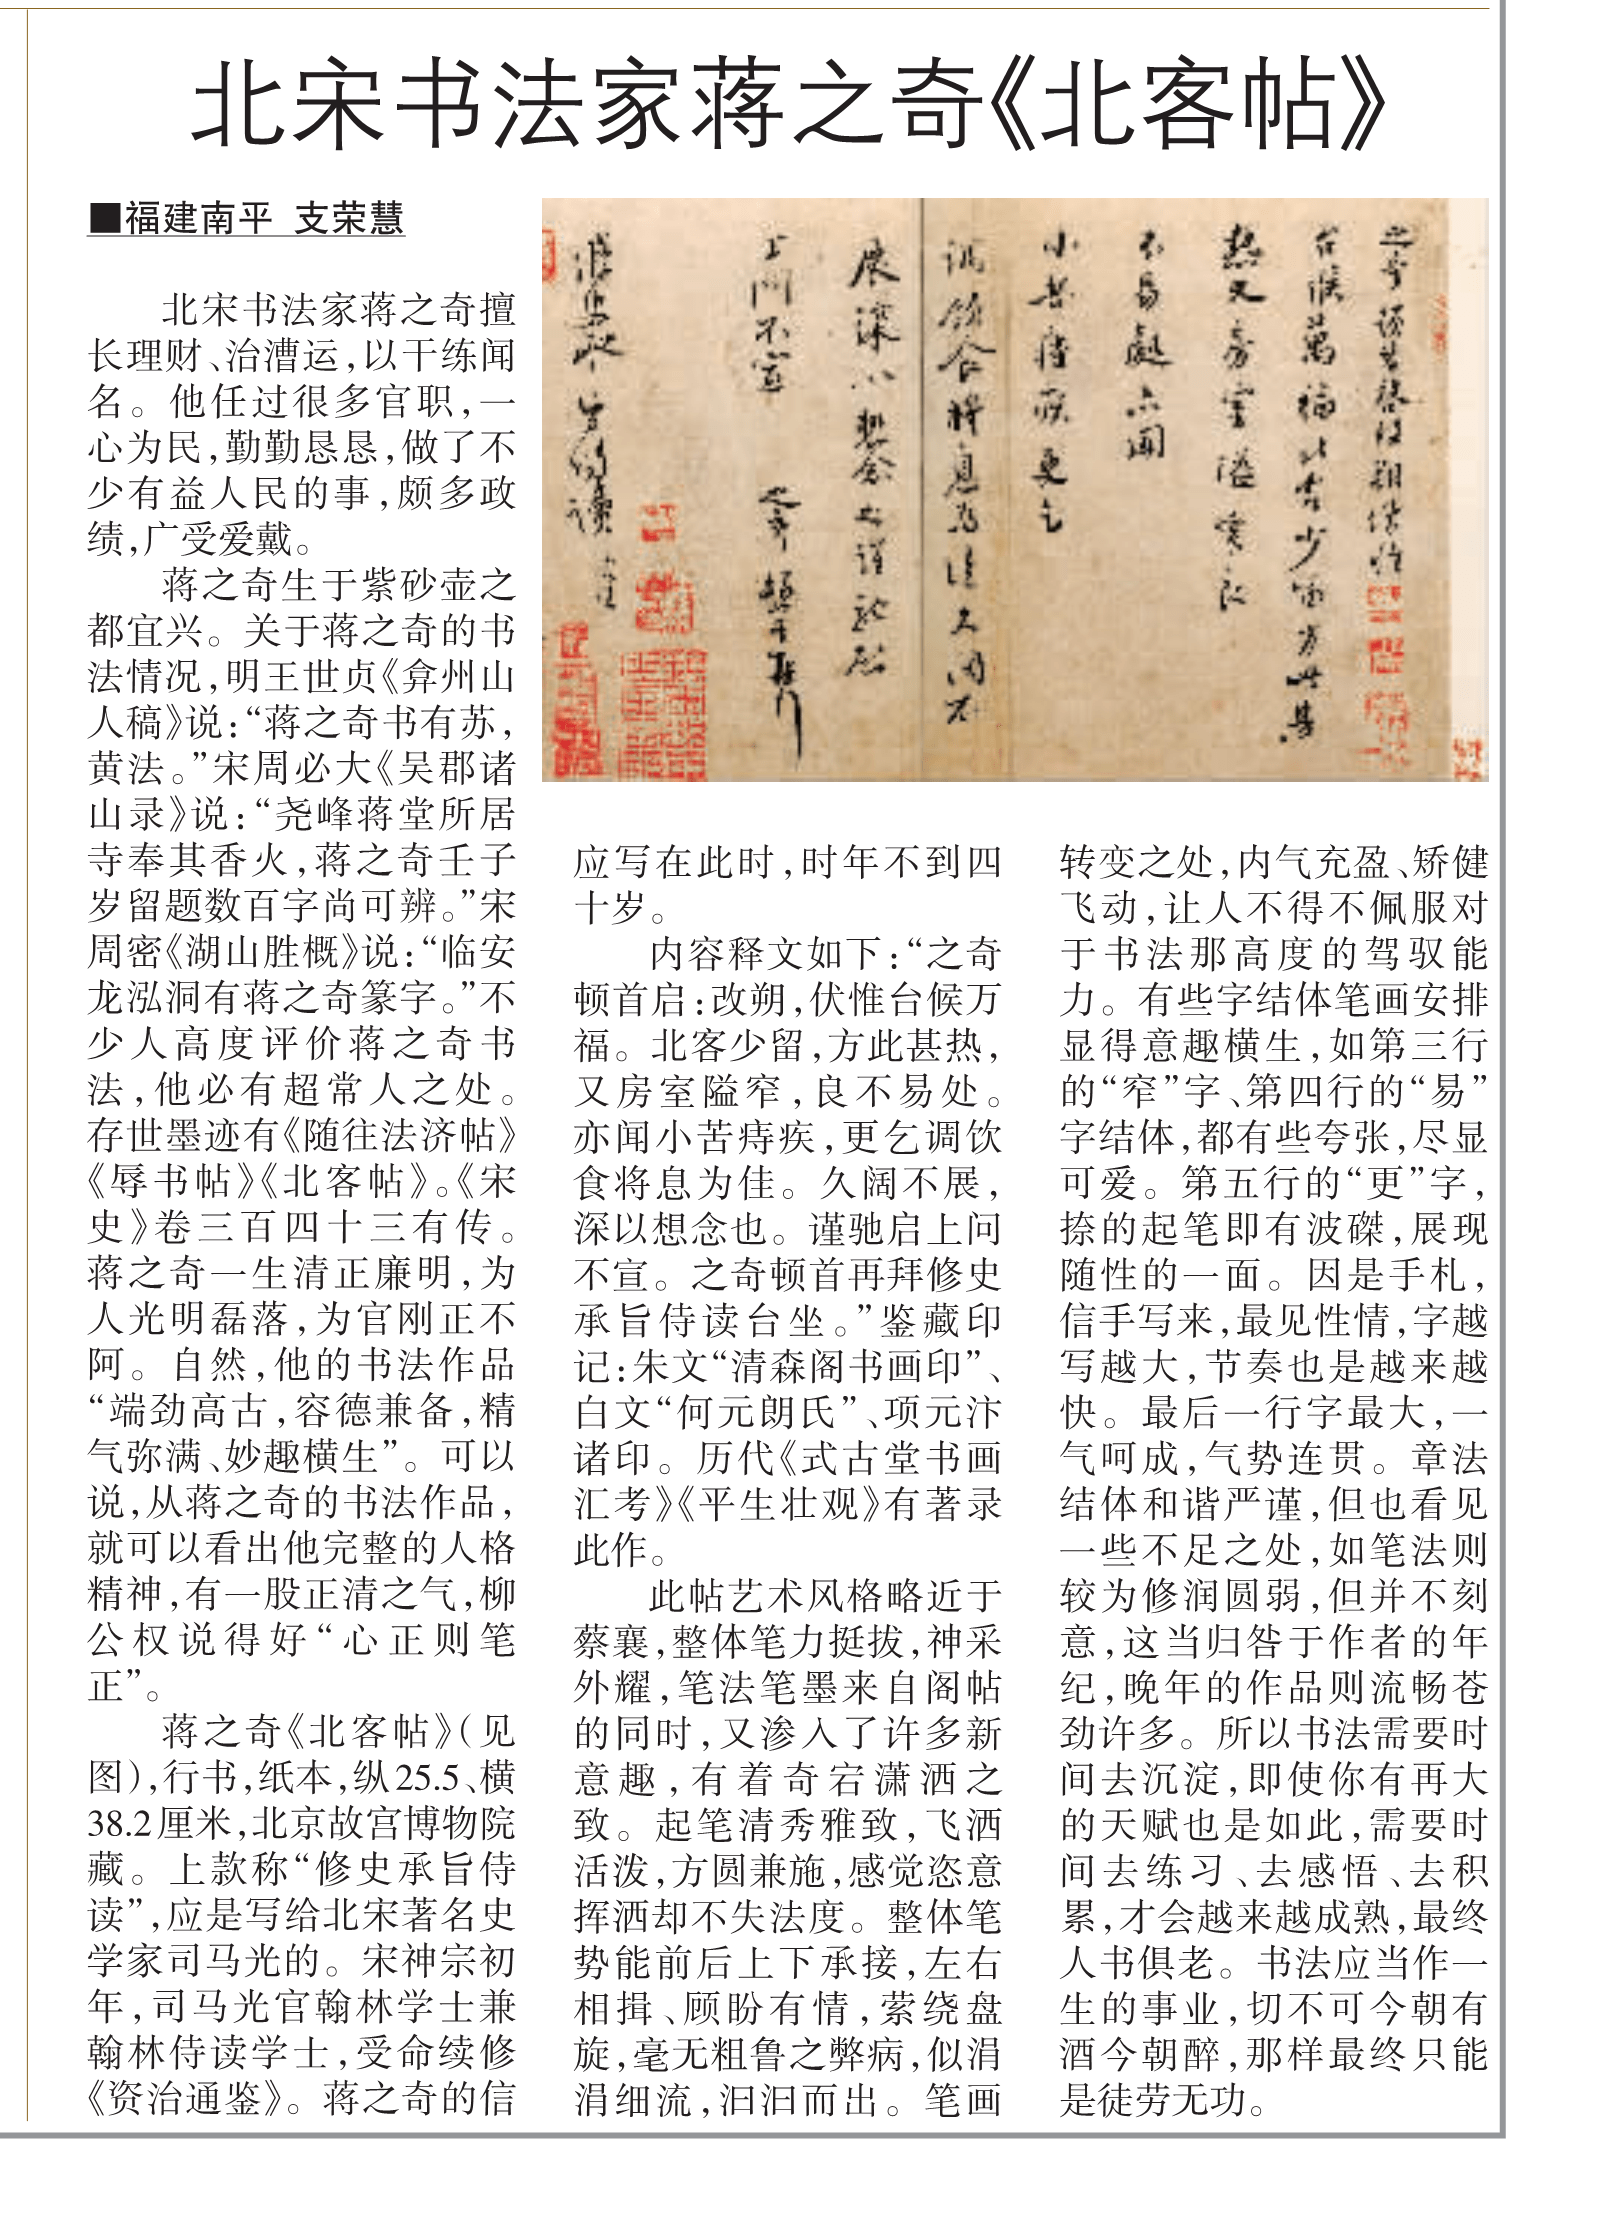 北宋书法家蒋之奇《北客帖》
■福建南平 支荣慧
北宋书法家蒋之奇擅
长理财、治漕运，以干练闻
名。他任过很多官职，一
心为民，勤勤恳恳，做了不
少有益人民的事，颇多政
绩，广受爱戴。
蒋之奇生于紫砂壶之
都宜兴。关于蒋之奇的书
法情况，明王世贞《弇州山
人稿》说：“蒋之奇书有苏，
黄法。”宋周必大《吴郡诸
山录》说：“尧峰蒋堂所居
寺奉其香火，蒋之奇壬子
岁留题数百字尚可辨。”宋
周密《湖山胜概》说：“临安
龙泓洞有蒋之奇篆字。”不
少人高度评价蒋之奇书
法，他必有超常人之处。
存世墨迹有《随往法济帖》
《辱书帖》《北客帖》。《宋
史》卷三百四十三有传。
蒋之奇一生清正廉明，为
人光明磊落，为官刚正不
阿。自然，他的书法作品
“端劲高古，容德兼备，精
气弥满、妙趣横生”。可以
说，从蒋之奇的书法作品，
就可以看出他完整的人格
精神，有一股正清之气，柳
公权说得好“心正则笔
正”。
蒋之奇《北客帖》（见
图），行书，纸本，纵25.5、横
38.2厘米，北京故宫博物院
藏。上款称“修史承旨侍
读”，应是写给北宋著名史
学家司马光的。宋神宗初
年，司马光官翰林学士兼
翰林侍读学士，受命续修
《资治通鉴》。蒋之奇的信
应写在此时，时年不到四
十岁。
内容释文如下：“之奇
顿首启：改朔，伏惟台候万
福。北客少留，方此甚热，
又房室隘窄，良不易处。
亦闻小苦痔疾，更乞调饮
食将息为佳。久阔不展，
深以想念也。谨驰启上问
不宣。之奇顿首再拜修史
承旨侍读台坐。”鉴藏印
记：朱文“清森阁书画印”、
白文“何元朗氏”、项元汴
诸印。历代《式古堂书画
汇考》《平生壮观》有著录
此作。
此帖艺术风格略近于
蔡襄，整体笔力挺拔，神采
外耀，笔法笔墨来自阁帖
的同时，又渗入了许多新
意趣，有着奇宕潇洒之
致。起笔清秀雅致，飞洒
活泼，方圆兼施，感觉恣意
挥洒却不失法度。整体笔
势能前后上下承接，左右
相揖、顾盼有情，萦绕盘
旋，毫无粗鲁之弊病，似涓
涓细流，汩汩而出。笔画
转变之处，内气充盈、矫健
飞动，让人不得不佩服对
于书法那高度的驾驭能
力。有些字结体笔画安排
显得意趣横生，如第三行
的“窄”字、第四行的“易”
字结体，都有些夸张，尽显
可爱。第五行的“更”字，
捺的起笔即有波磔，展现
随性的一面。因是手札，
信手写来，最见性情，字越
写越大，节奏也是越来越
快。最后一行字最大，一
气呵成，气势连贯。章法
结体和谐严谨，但也看见
一些不足之处，如笔法则
较为修润圆弱，但并不刻
意，这当归咎于作者的年
纪，晚年的作品则流畅苍
劲许多。所以书法需要时
间去沉淀，即使你有再大
的天赋也是如此，需要时
间去练习、去感悟、去积
累，才会越来越成熟，最终
人书俱老。书法应当作一
生的事业，切不可今朝有
酒今朝醉，那样最终只能
是徒劳无功。